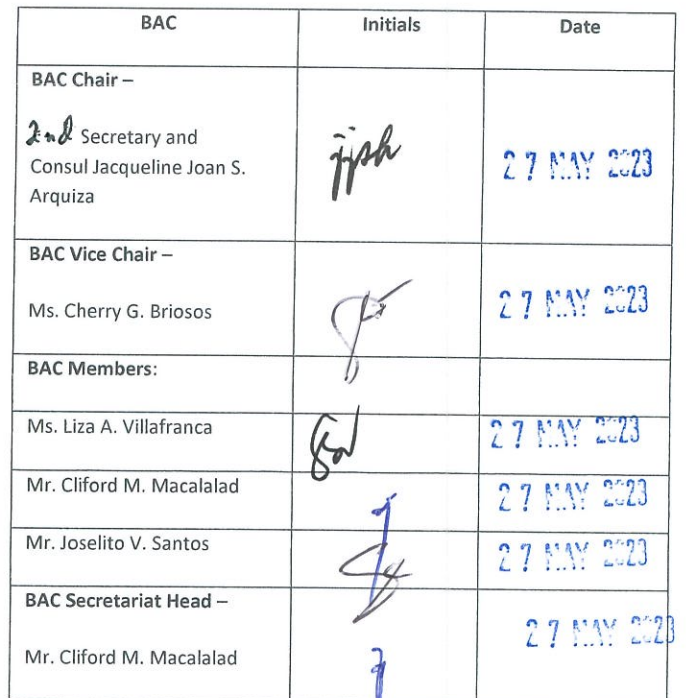 BAC Initials Date
BAC Chair –
2nd Secretary and
Consul Jacqueline Joan S.
Arquiza
27 MAY 2023
BAC Vice Chair –
Ms. Cherry G. Briosos
27 MAY 2023
BAC Members:
Ms. Liza A. Villafranca
27 MAY 2023
Mr. Cliford M. Macalalad
27 MAY 2023
Mr. Joselito V. Santos
27 MAY 2023
BAC Secretariat Head –
27 MAY 2023
Mr. Cliford M. Macalalad